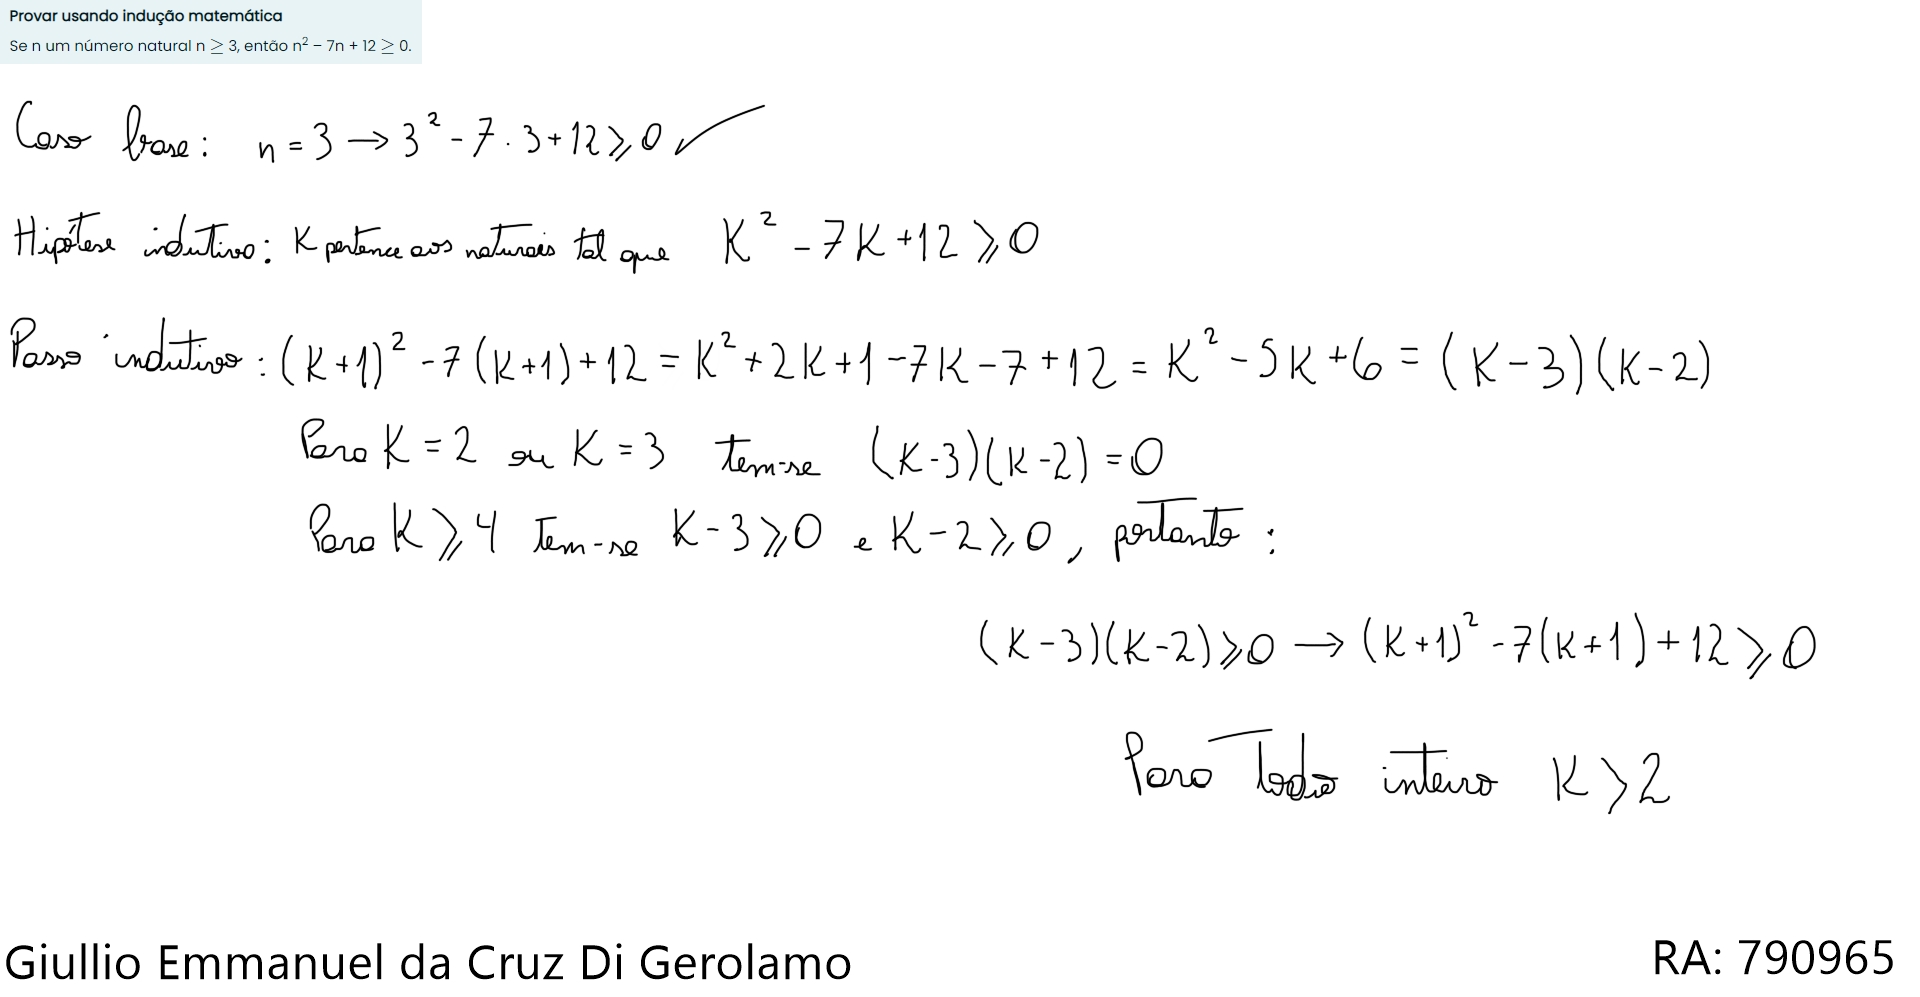 Provar usando indução matemática
Se n um número natural n ≥ 3, então n² – 7n + 12 ≥ 0.
Caso base: n = 3 → 3² - 7 . 3 + 12 ≥ 0 ✓
Hipótese indutivo: K pertence aos naturais tal que K² - 7K + 12 ≥ 0
Passo indutivo: (K+1)² - 7(K+1) + 12 = K² + 2K + 1 - 7K - 7 + 12 = K² - 5K + 6 = (K-3)(K-2)
Para K = 2 ou K = 3 tem-se (K-3)(K-2) = 0
Para K ≥ 4 tem-se K-3 ≥ 0 e K-2 ≥ 0, portanto:
(K-3)(K-2) ≥ 0 → (K+1)² - 7(K+1) + 12 ≥ 0
Para todo inteiro K > 2
Giullio Emmanuel da Cruz Di Gerolamo
RA: 790965